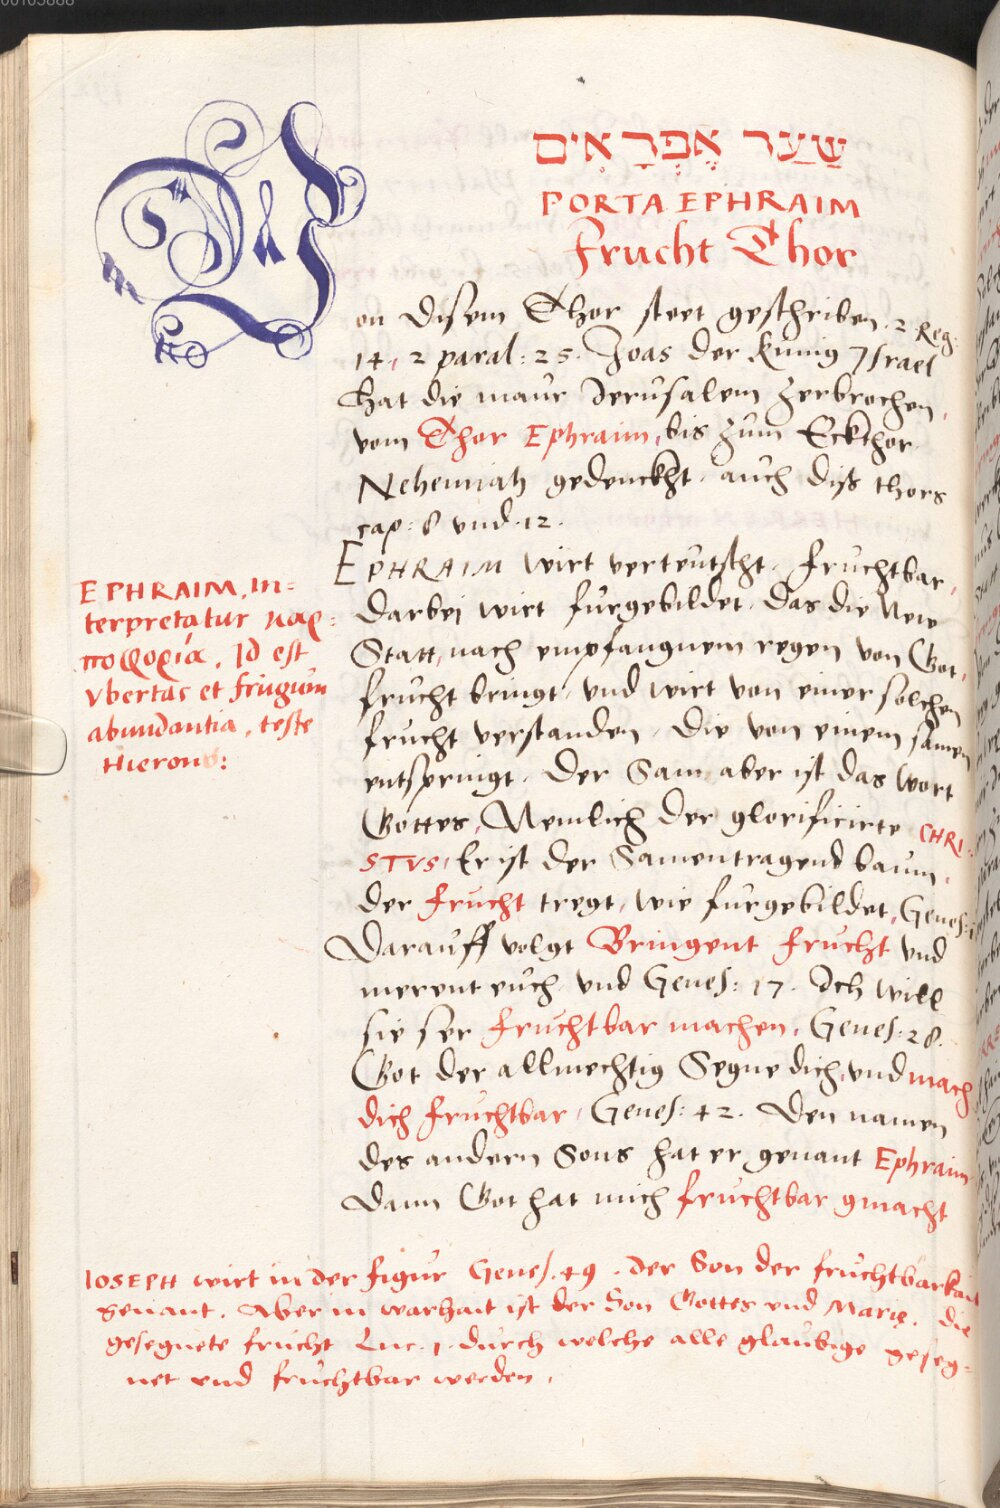 שַׁעַר אֶפְרָאִים
PORTA EPHRAIM
Frucht Thor
Von disem Thor steet geschriben. 2 Reg:
14, 2 paral: 25. Joas der Kunig Israel
hat die maur Jerusalem zerbrochen,
vom Thor Ephraim, bis zum Eckthor.
Nehemiah gedenckht auch diß thors
cap: 8 vnd 12.
EPHRAIM wirt verteutscht. fruchtbar,
darbei wirt furgebildet, das die New
Statt, nach empfangnem regen von Got,
frucht bringt, vnd wirt von einer solchen
frucht verstanden, Die von einem samen
entspringt. Der Sam aber ist das Wort
Gottes, Nemlich der glorificirte CHRI=
STVS, Er ist der Samentragend baum,
der frucht tregt, wie furgebildet, Genes: 1
Darauff volgt Bringent frucht vnd
merent euch vnd Genes: 17. Ich will
sie ser fruchtbar machen, Genes: 28.
Got der allmechtig Segne dich, vnd mach
dich fruchtbar, Genes: 42. Den namen
des andern Sons hat er genant Ephraim
Dann Got hat mich fruchtbar gmacht
EPHRAIM, in=
terpretatur καρ=
ποφορία, Id est
Vbertas et frugum
abundantia, teste
Hieron:
IOSEPH wirt in der figur Genes. 49. der Son der fruchtbarkait
genant. Aber in warhait ist der Son Gottes vnd Marie, die
gesegnete frucht Luc. 1. durch welche alle glaubige geseg=
net vnd fruchtbar werden,
00103888